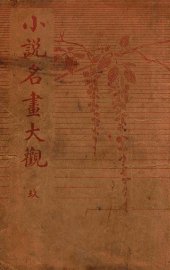 小說名畫大觀
玖